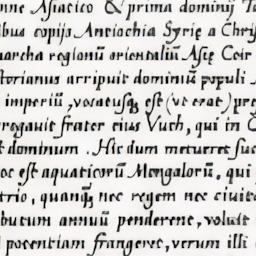 nne Asiatico & prima dominij Ta
ibus copijs Antiochia Syrię a Chri
narcha regionū orientaliū Asię Ceir
torianus arripuit dominiū populi
imperiū, vocatusq₃ est (vt erat) pre
rogauit frater eius Vuch, qui in C
t dominum . Hic dum metueret suc
oc est aquaticorū Mongalorū, qui
trio, quanq̃ nec regem nec ciuit
ibutum annuū penderent, voluit
potentiam frangere, verum illi